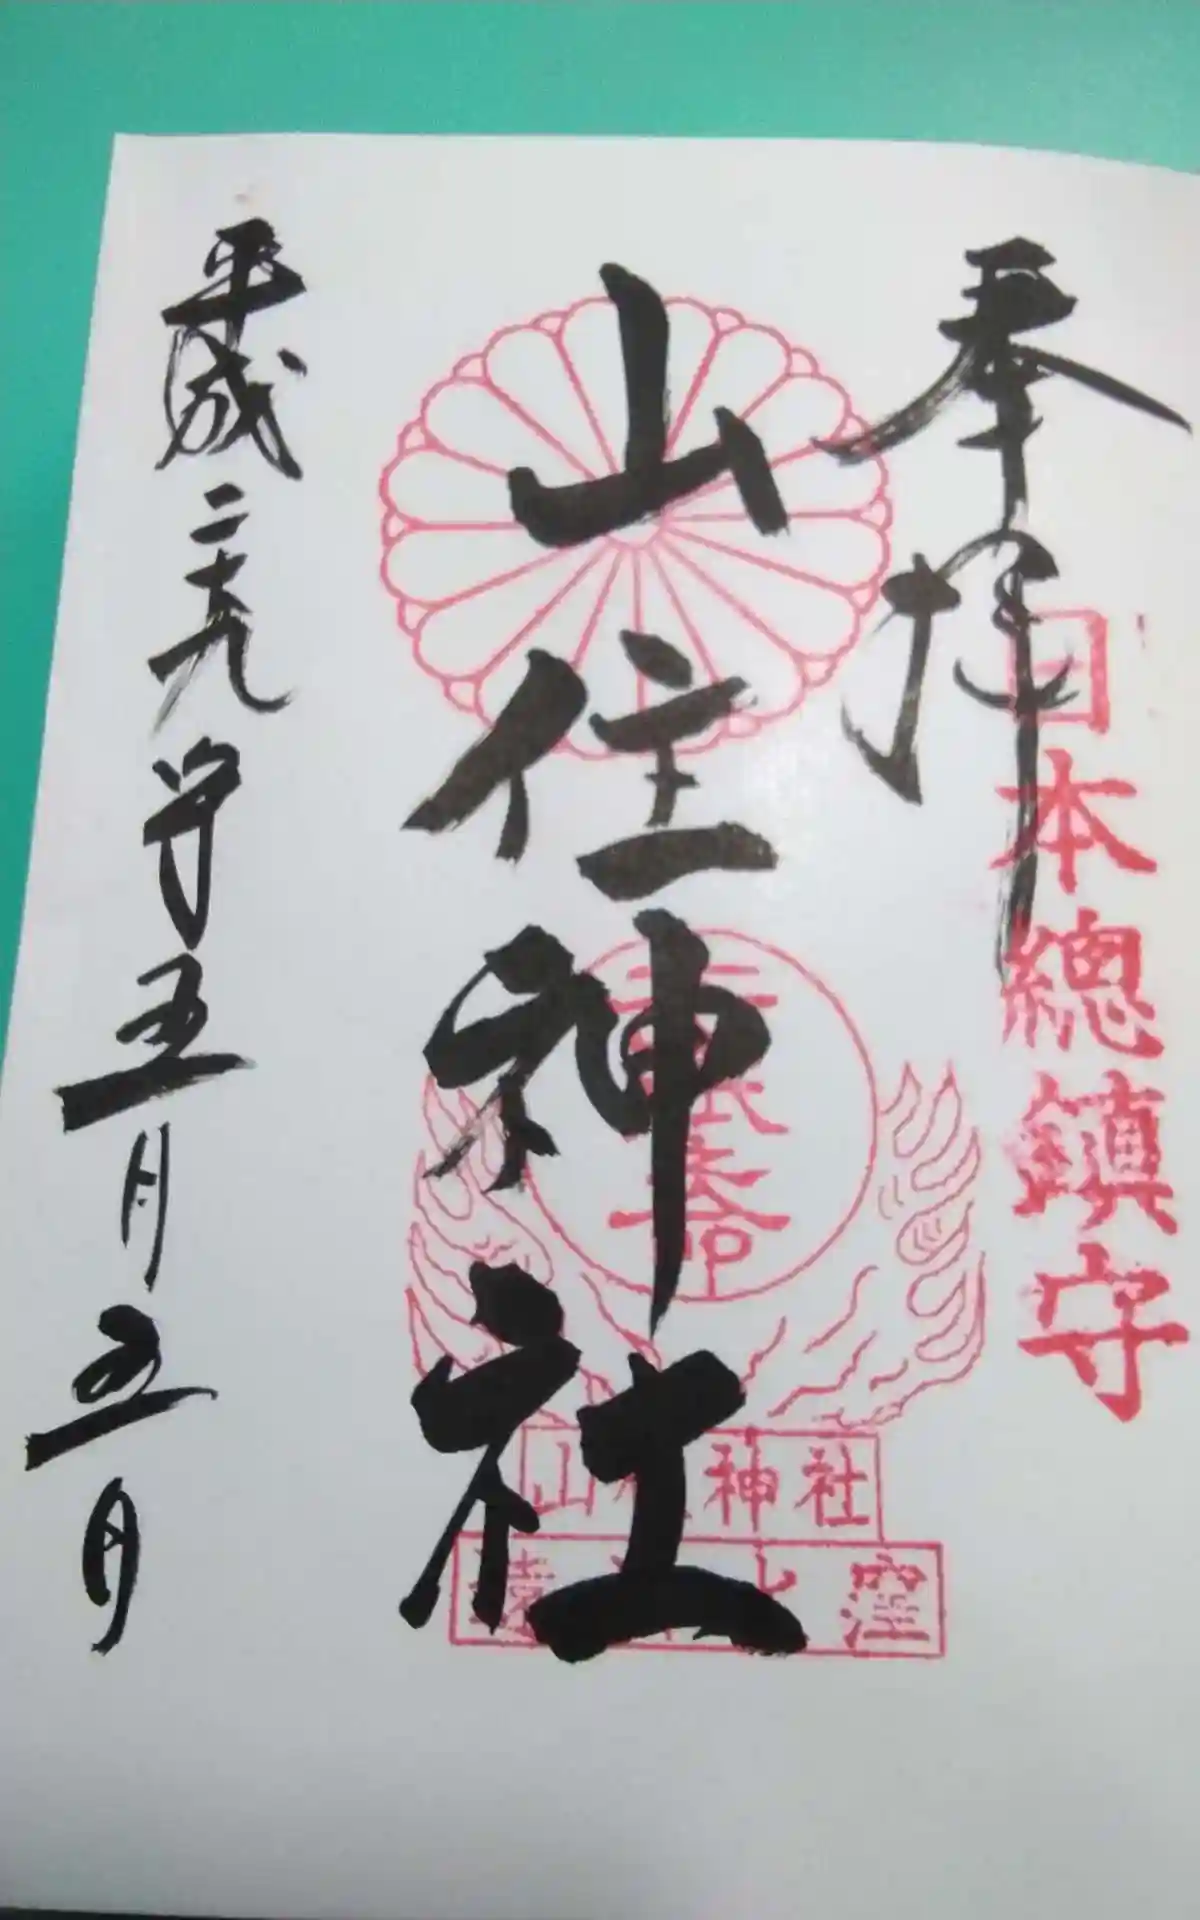 奉拝
日本總鎮守
山住神社
山住神社
平成二十九年五月五日